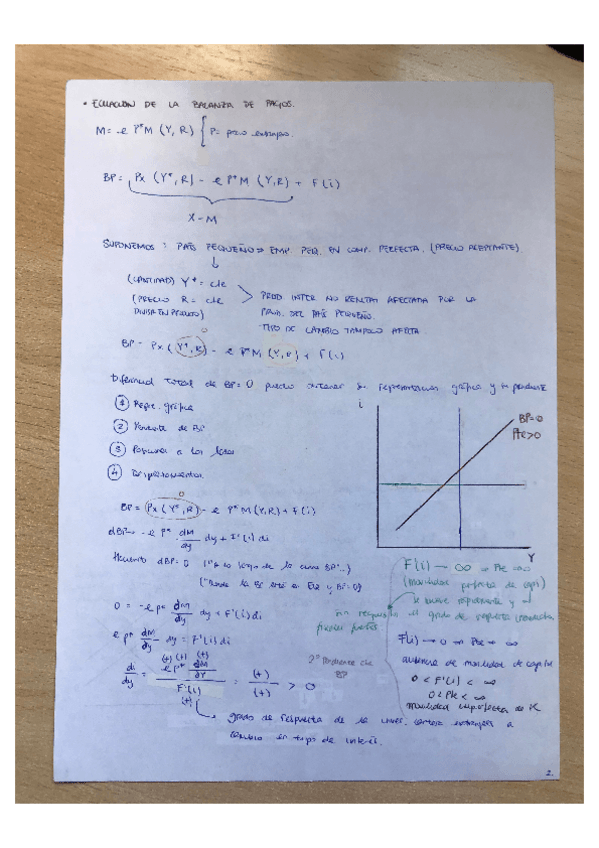 • ECUACION DE LA BALANZA DE PAGOS.
M = e P* M (Y, R) { P = precio extranjero.
BP = Px (Y*, R) - e P* M (Y, R) + F(i)
X - M
SUPONEMOS : PAÍS PEQUEÑO => EMP. PEQ. EN COMP. PERFECTA. (PRECIO ACEPTANTE)
(CANTIDAD) Y* = cte
(PRECIO R = cte
DIVISA EN PRODUCTO)
PROD. INTER NO RENTAN AFECTADA POR LA
PROD. DEL PAÍS PEQUEÑO.
TIPO DE CAMBIO TAMPOCO AFECTA.
0
BP = Px. (Y*, R) - e P* M (Y, R) + F(i)
Diferencial total de BP = 0 puedo obtener su representación gráfica y la pendiente
① Repre. gráfica
② Pendiente de BP
③ Posiciones a los lados
④ Desplazamientos
i
BP=0
Pte>0
Y
0
BP = Px (Y*, R) - e P* M (Y, R) + F(i)
dBP = - e P* dM/dy dy + F'(i) di
dBP = 0 (a lo largo de la curva BP...)
(Donde la BP está en EQ y BP=0)
0 = - e P* dM/dy dy + F'(i) di
e P* dM/dy dy = F'(i) di
(+) (+) (+)
di/dy = e P* dM/dY / F'(i) = (+)/(+) > 0
(+)
2º Pendiente de
BP
grado de respuesta de la inver. cartera extranjera a
cambio en tipos de interés.
F(i) → ∞ => Pte
(movilidad perfecta de cap.)
se mueve rápidamente y
el grado de respuesta
F'(i) → 0 => Pte → ∞
ausencia de movilidad de capital
0 < F'(i) < ∞
0 < Pte < ∞
movilidad imperfecta de K
2.